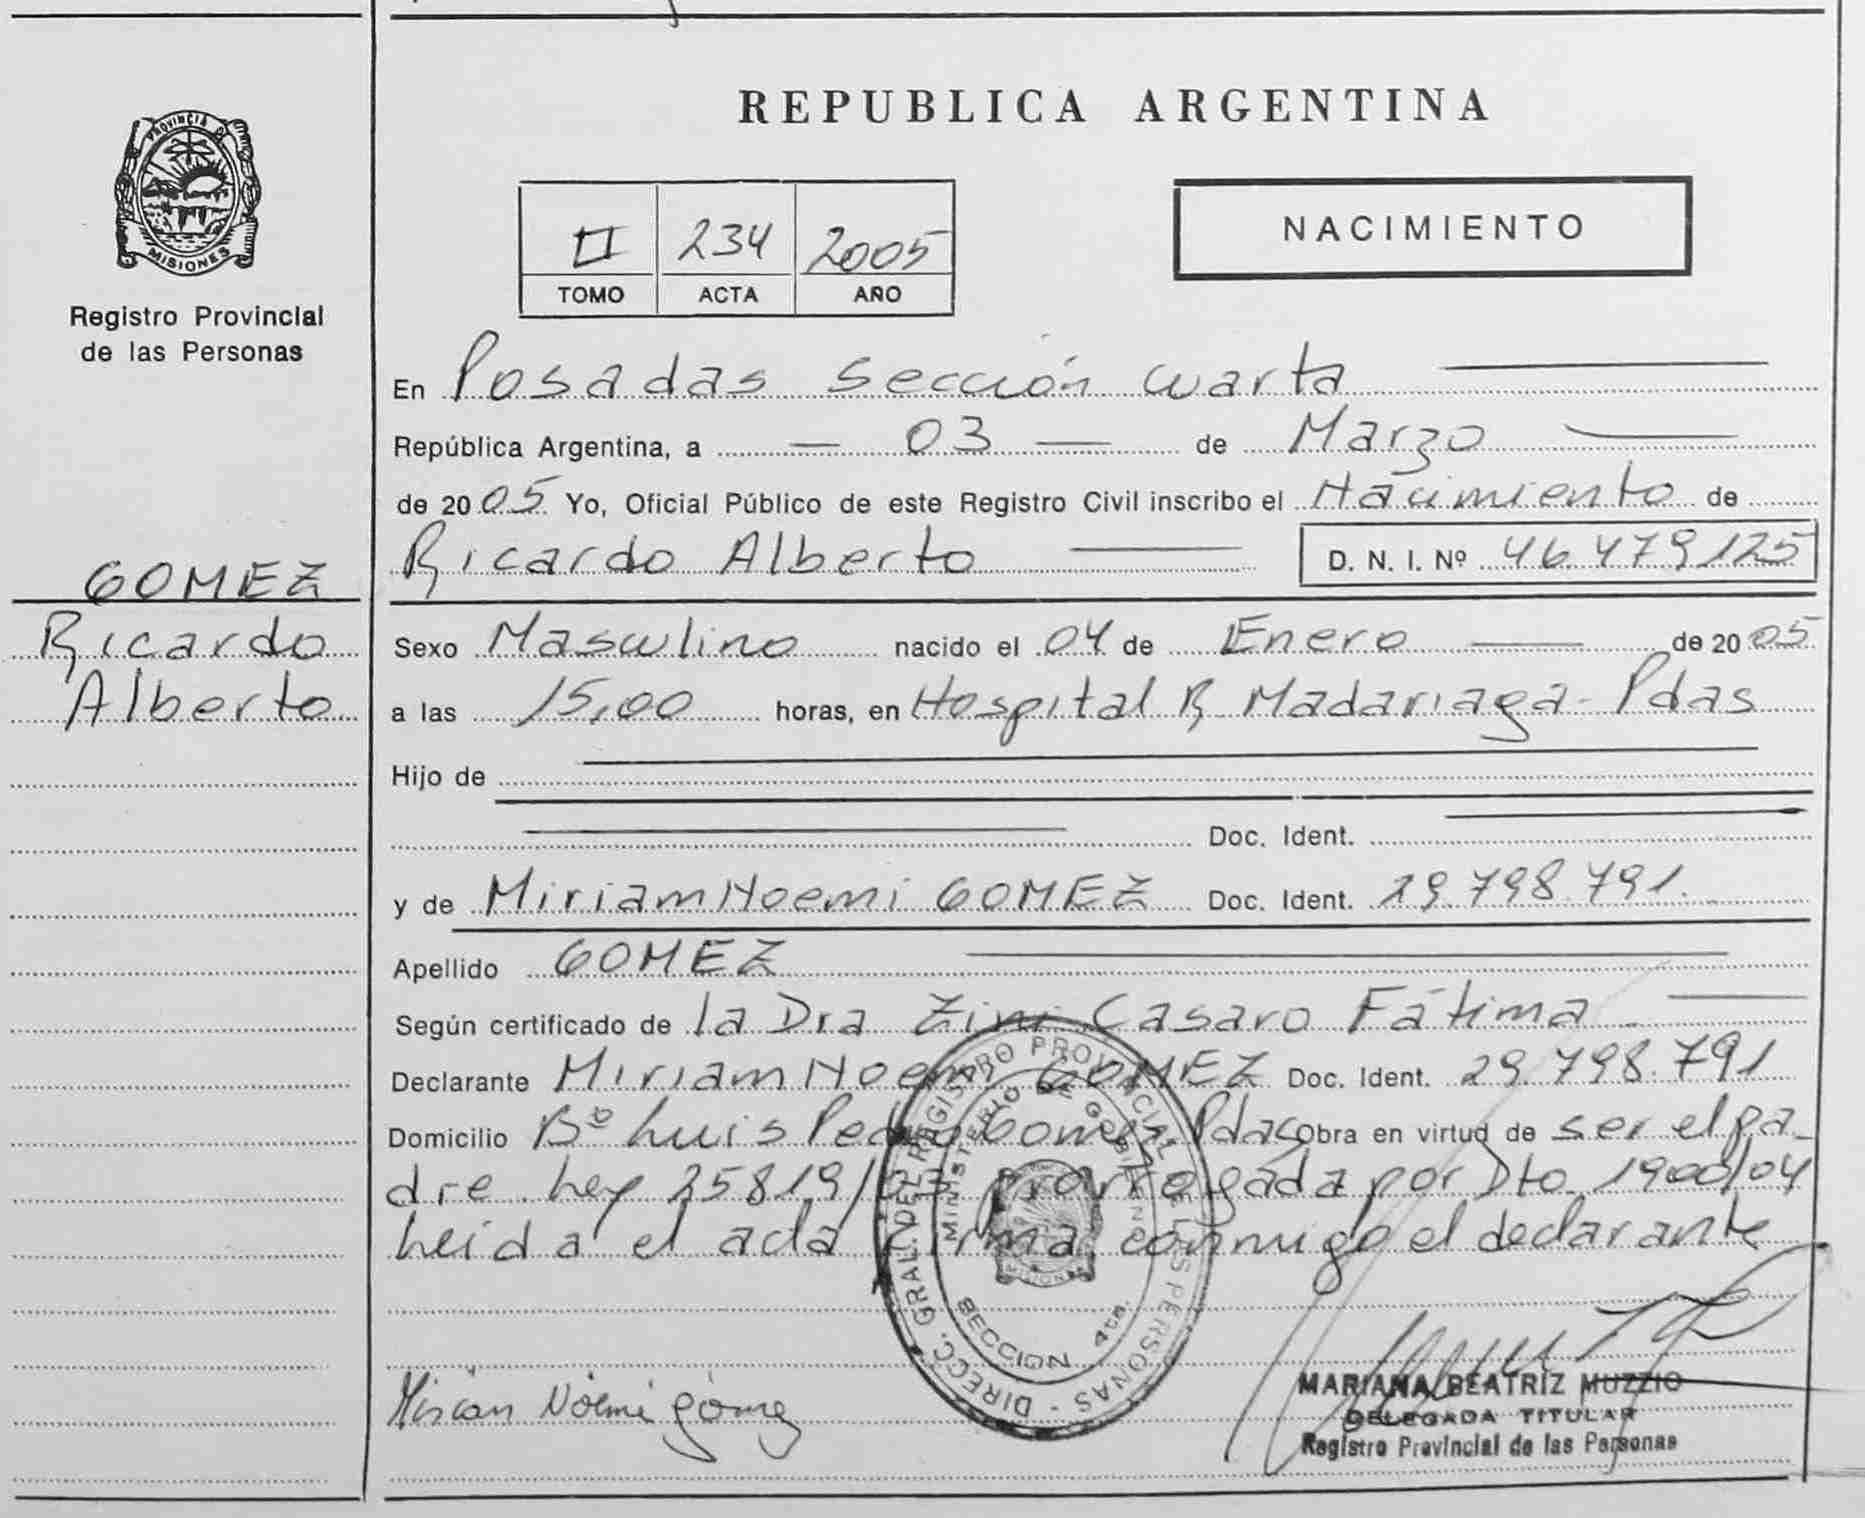 PROVINCIA DE
MISIONES
Registro Provincial
de las Personas
GOMEZ
Ricardo
Alberto
REPUBLICA ARGENTINA
II 234 2005
TOMO ACTA AÑO
NACIMIENTO
En Posadas Sección cuarta
República Argentina, a 03 de Marzo
de 2005 Yo, Oficial Público de este Registro Civil inscribo el Nacimiento de
Ricardo Alberto D. N. I. Nº 46.479.125
Sexo Masculino nacido el 04 de Enero de 2005
a las 15,00 horas, en Hospital R Madariaga - Pdas
Hijo de
Doc. Ident.
y de Miriam Noemi GOMEZ Doc. Ident. 29.798.791.
Apellido GOMEZ
Según certificado de la Dra Zini Casaro Fátima
Declarante Miriam Noemi GOMEZ Doc. Ident. 29.798.791
Domicilio Bº Luis Pedro Gomez Pdas Obra en virtud de ser el pa-
dre. Ley 25819/03 prorrogada por Dto 1900/04
Leida el acta firma conmigo el declarante
DIRECC. GRAL. DEL REGISTRO PROVINCIAL DE LAS PERSONAS -
MINISTERIO DE GOBIERNO
MISIONES
SECCION 4ta.
Mirian Noemi gómez
MARIANA BEATRIZ MUZZIO
DELEGADA TITULAR
Registro Provincial de las Personas